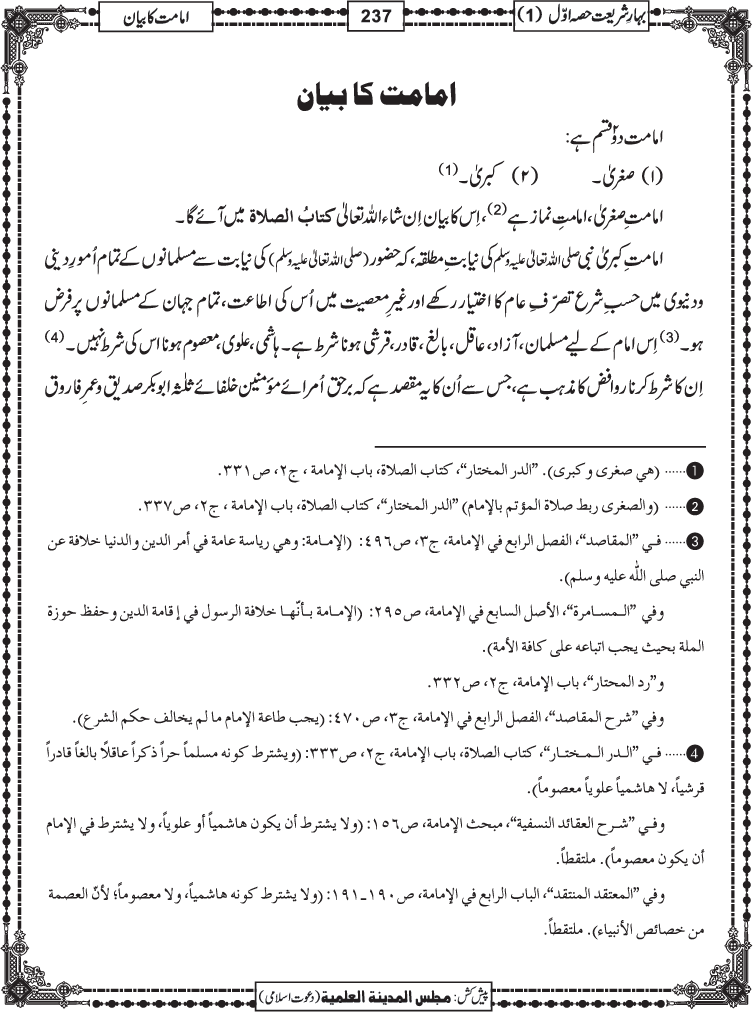 بہارِ شریعت حصہ اوّل (1)
237
امامت کا بیان
امامت کا بیان
امامت دو۲ قسم ہے:
(۱) صغریٰ۔ (۲) کبریٰ۔(1)
امامتِ صغریٰ، امامتِ نماز ہے(2)، اِس کا بیان اِن شاء اللہ تعالیٰ کتابُ الصلاۃ میں آئے گا۔
امامتِ کبریٰ نبی صلی اللہ تعالیٰ علیہ وسلم کی نیابتِ مطلقہ، کہ حضور (صلی اللہ تعالیٰ علیہ وسلم) کی نیابت سے مسلمانوں کے تمام اُمورِ دینی
ودنیوی میں حسبِ شرع تصرّفِ عام کا اختیار رکھے اور غیرِ معصیت میں اُس کی اطاعت، تمام جہان کے مسلمانوں پر فرض
ہو۔(3) اِس امام کے لیے مسلمان، آزاد، عاقل، بالغ، قادر، قرشی ہونا شرط ہے۔ ہاشمی، علوی، معصوم ہونا اس کی شرط نہیں۔(4)
اِن کا شرط کرنا روافض کا مذہب ہے، جس سے اُن کا یہ مقصد ہے کہ برحق اُمرائے مؤمنین خلفائے ثلٰثہ ابوبکر صدیق و عمرِ فاروق
1...... (هي صغرى وكبرى). ”الدر المختار“، كتاب الصلاة، باب الإمامة ، ج٢، ص٣٣١.
2...... (والصغرى ربط صلاة المؤتم بالإمام) ”الدر المختار“، كتاب الصلاة، باب الإمامة ، ج٢، ص٣٣٧.
3...... فـي ”المقاصد“، الفصل الرابع في الإمامة، ج٣، ص٤٩٦: (الإمـامة: وهي رياسة عامة في أمر الدين والدنيا خلافة عن
النبي صلى الله عليه وسلم).
وفي ”الـمسـامرة“، الأصل السابع في الإمامة، ص٢٩٥: (الإمـامة بـأنّهـا خلافة الرسول في إقامة الدين وحفظ حوزة
الملة بحيث يجب اتباعه على كافة الأمة).
و”رد المحتار“، باب الإمامة، ج٢، ص٣٣٢.
وفي ”شرح المقاصد“، الفصل الرابع في الإمامة، ج٣، ص٤٧٠: (يجب طاعة الإمام ما لم يخالف حكم الشرع).
4...... فـي ”الـدر الـمـختـار“، كتاب الصلاة، باب الإمامة، ج٢، ص٣٣٣: (ويشترط كونه مسلماً حراً ذكراً عاقلًا بالغاً قادراً
قرشياً، لا هاشمياً علوياً معصوماً).
وفـي ”شـرح العقائد النسفية“، مبحث الإمامة، ص١٥٦: (ولا يشترط أن يكون هاشمياً أو علوياً، ولا يشترط في الإمام
أن يكون معصوماً). ملتقطاً.
وفي ”المعتقد المنتقد“، الباب الرابع في الإمامة، ص١٩٠ـ١٩١: (ولا يشترط كونه هاشمياً، ولا معصوماً؛ لأنّ العصمة
من خصائص الأنبياء). ملتقطاً.
پیش کش: مجلس المدینة العلمیة (دعوتِ اسلامی)